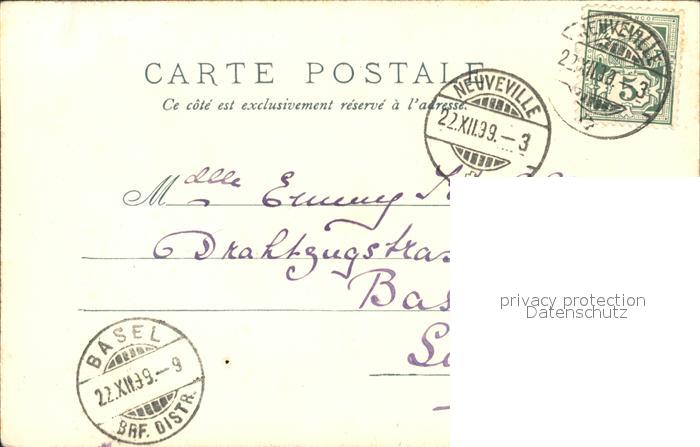 CARTE POSTALE
Ce côté est exclusivement réservé à l'adresse.
NEUVEVILLE
22.XII.99.-3
NEUVEVILLE
22.XII.99.-3
5
Mdlle Emmy
Drahtzugstras
Bas
privacy protection
Datenschutz
BASEL
22.XII.99.-9
BRF. DISTR.